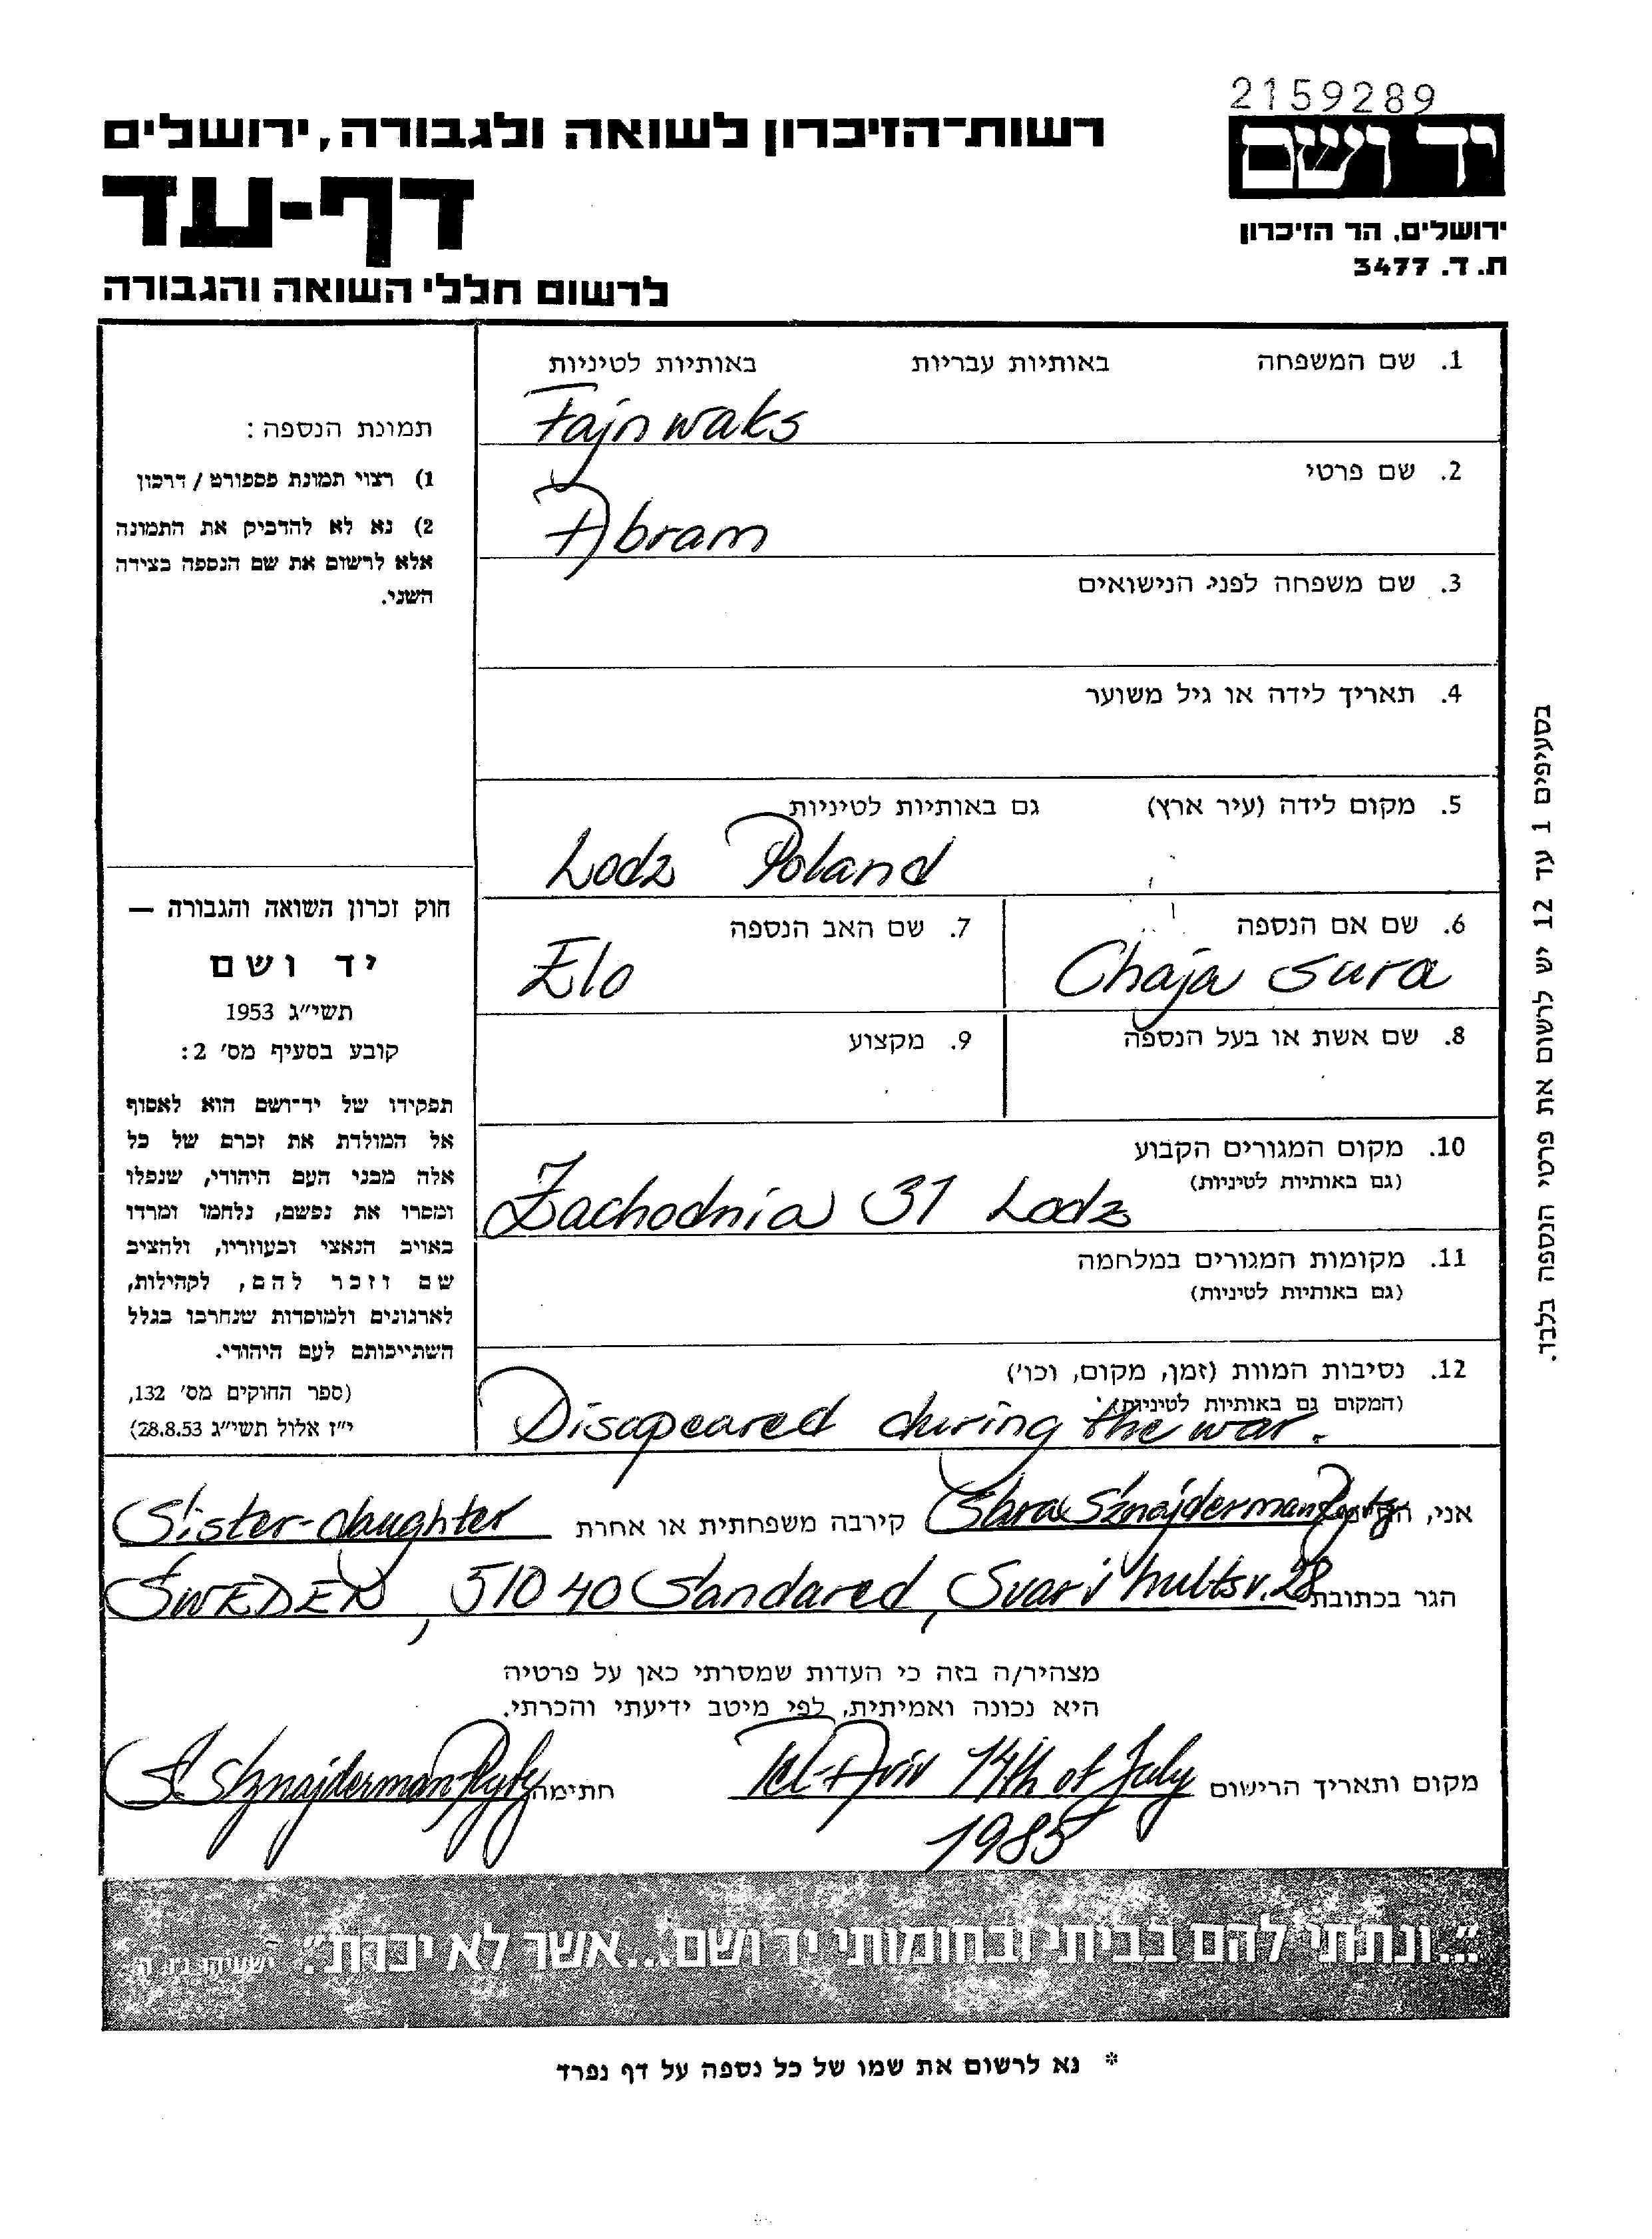 2159289
יד ושם
רשות-הזיכרון לשואה ולגבורה, ירושלים
דף-עד
ירושלים, הר הזיכרון
ת.ד. 3477
לרשום חללי השואה והגבורה
1. שם המשפחה באותיות עבריות באותיות לטיניות
Fajnwaks
2. שם פרטי
Abram
3. שם משפחה לפני הנישואים
4. תאריך לידה או גיל משוער
5. מקום לידה (עיר ארץ) גם באותיות לטיניות
Lodz Poland
6. שם אם הנספה
Chaja Sura
7. שם האב הנספה
Elo
8. שם אשת או בעל הנספה
9. מקצוע
10. מקום המגורים הקבוע
(גם באותיות לטיניות)
Zachodnia 31 Lodz
11. מקומות המגורים במלחמה
(גם באותיות לטיניות)
12. נסיבות המוות (זמן, מקום, וכו')
(המקום גם באותיות לטיניות)
Disapeared during the war.
תמונת הנספה:
1) רצוי תמונת פספורט / דרכון
2) נא לא להדביק את התמונה
אלא לרשום את שם הנספה בצידה
השני.
חוק זכרון השואה והגבורה —
יד ושם
תשי"ג 1953
קובע בסעיף מס' 2:
תפקידו של יד-ושם הוא לאסוף
אל המולדת את זכרם של כל
אלה מבני העם היהודי, שנפלו
ומסרו את נפשם, נלחמו ומרדו
באויב הנאצי ובעוזריו, ולהציב
שם וזכר להם, לקהילות,
לארגונים ולמוסדות שנחרבו בגלל
השתייכותם לעם היהודי.
(ספר החוקים מס' 132,
י"ז אלול תשי"ג 28.8.53)
בסעיפים 1 עד 12 יש לרשום את פרטי הנספה בלבד.
אני, Sara Sznajderman קירבה משפחתית או אחרת Sister-daughter
הגר בכתובת SWEDEN, 510 40 Sandared, 28
מצהיר/ה בזה כי העדות שמסרתי כאן על פרטיה
היא נכונה ואמיתית, לפי מיטב ידיעתי והכרתי.
מקום ותאריך הרישום Tel-Aviv 14th of July
1985
חתימה S Sznajderman
"...ונתתי להם בביתי ובחומותי יד ושם...אשר לא יכרת." ישעיהו נ"ו, ה'
* נא לרשום את שמו של כל נספה על דף נפרד